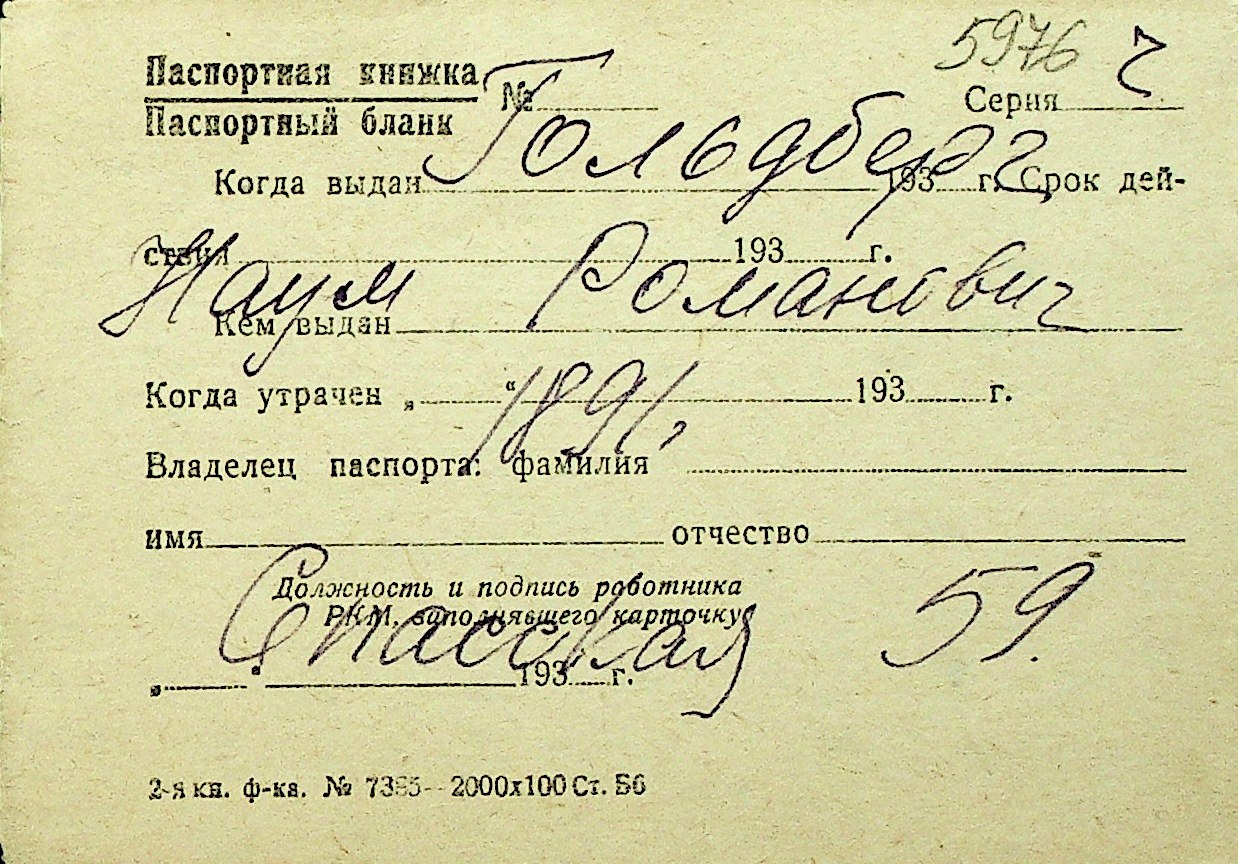 5976 ч
Паспортная книжка
Паспортный бланк № Серия
Гольдберг
Когда выдан 193 г. Срок дей-
ствия 193 г.
Наум Романович
Кем выдан
Когда утрачен „ “ 193 г.
1891,
Владелец паспорта: фамилия
имя отчество
Должность и подпись работника
РКМ, заполнявшего карточку
Спасская 59.
„ “ 193 г.
2-я кн. ф-ка. 2000х100 Ст. Б6